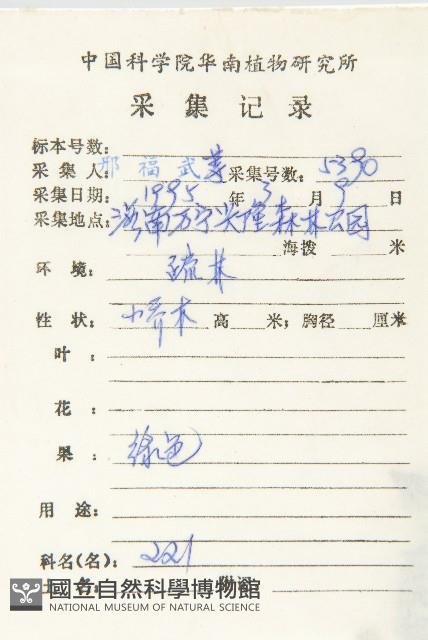 中国科学院华南植物研究所
采集记录
标本号数：
采集人：邢福武等 采集号数：5390
采集日期：1995年3月9日
采集地点：海南万宁兴隆森林公园
海拨 米
环境： 疏林
性状： 小乔木 高 米；胸径 厘米
叶：
花：
果： 绿色
用途：
科名（名）： 221
國立自然科學博物館
NATIONAL MUSEUM OF NATURAL SCIENCE